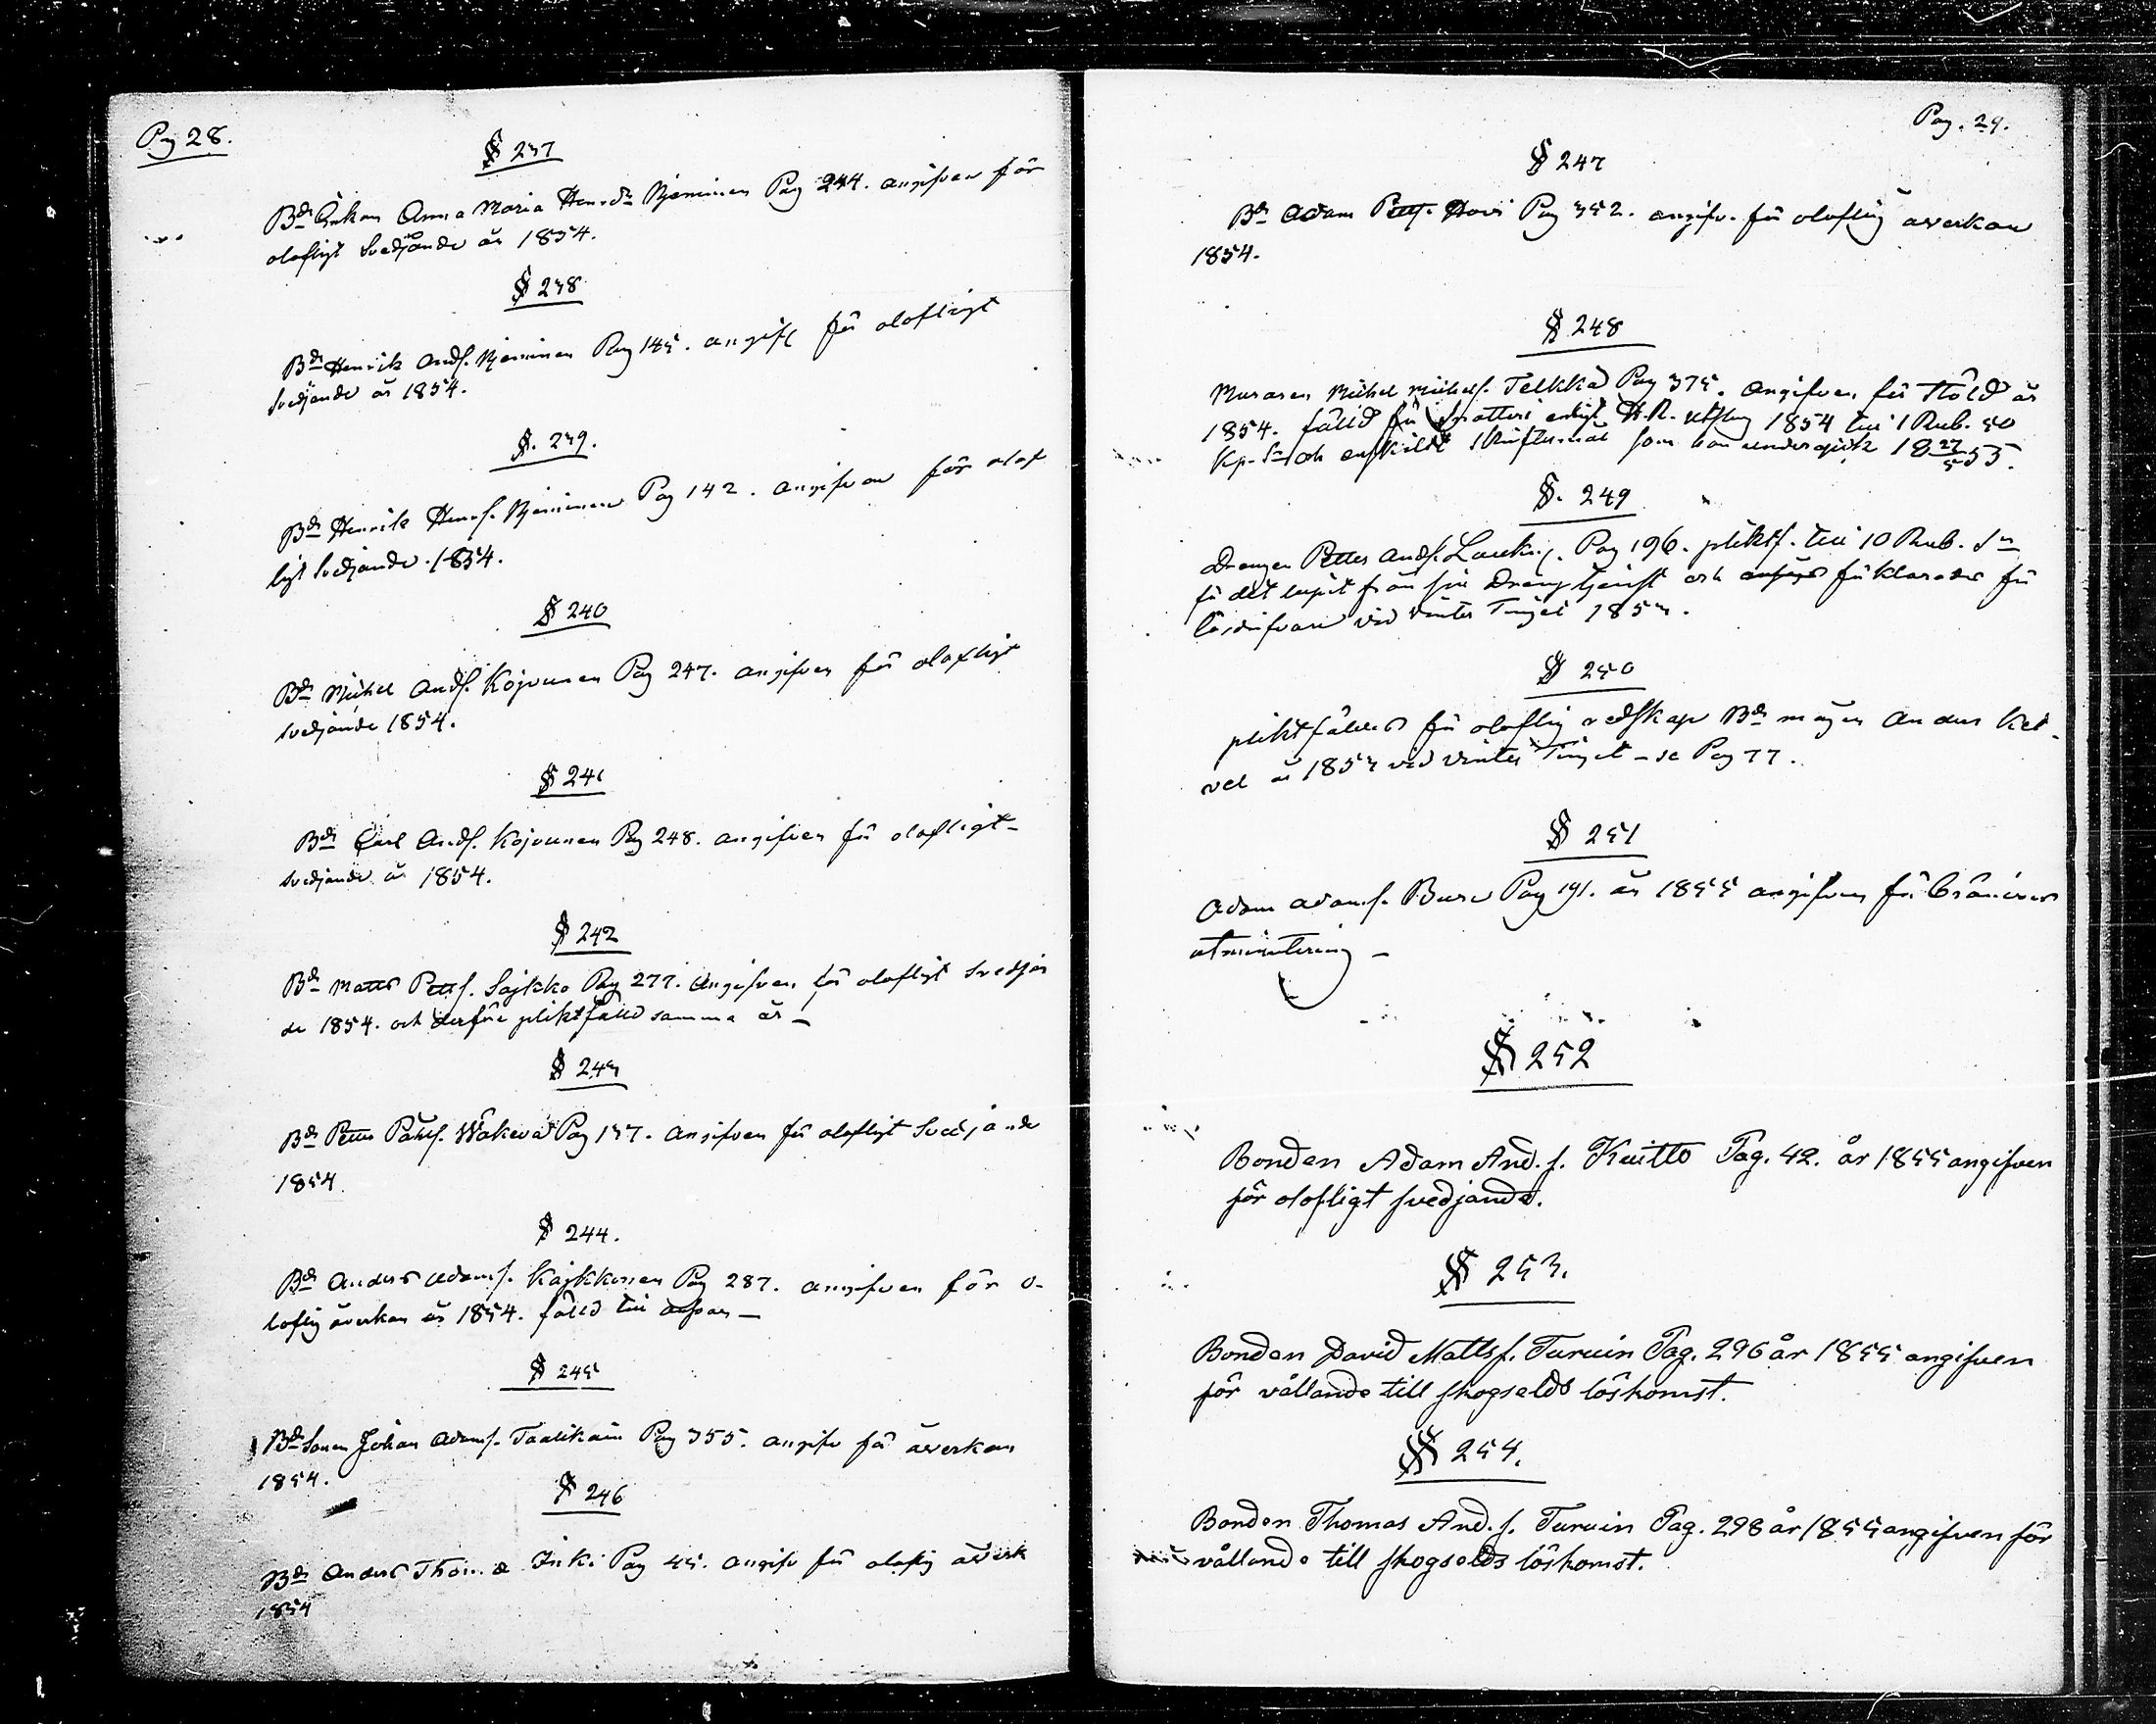 Pag 28.
§ 237
Bde Enkan Anna Maria Henrdr Njeminen Pag 244. angifven för
olofligt Svedjande år 1854.
§ 238
Bdn Henrik Andf. Njeminen Pag 145. angift för olofligt
svedjande år 1854.
§. 239.
Bdn Henrik Henrf. Njeminen Pag 142. angifven för olof
ligt Svedjande 1854.
§ 240
Bdn Michel Andf. Kojvunen Pag 247. angifven för olofligt
svedjande 1854.
§ 241
Bdn Carl Andf. Kojvunen Pag 248. angifven för olofligt
svedjande år 1854.
§ 242
Bdn Matts Pettf. Sajkko Pag 277. angifven för olofligt svedjan
de 1854. och derföre pliktfälld samma år —
§ 243
Bdn Petter Påhlf. Wäkevä Pag 137. angifven för olofligt Svedjande
1854
§ 244.
Bdn Anders Adamf. Kajkkonen Pag 287. angifven för o-
loflig åverkan år 1854. fälld till ansvar —
§ 245
Bde Sonen Johan Adamf. Taalikain Pag 355. angifv för åverkan
1854.
§ 246
Bdn Anders Thom. Inki Pag 45. angifv för oloflig åverk
1854
Pag. 29.
§ 247
Bdn Adam Pettf. Hovi Pag 352. angifv. för oloflig averkan
1854.
§ 248
Muraren Michel Michelf. Telkkä Pag 375. angifven för Stöld år
1854. fälld för Snatteri enligt H.R. utslag 1854 till 1 Rub. 50
Kp. Sr och enskildt skriftermål som han undergick 18 27/5 55.
§. 249
Drengen Petter Andf. Pag 196. pliktf. till 10 Rub. Sr
för det lupit från sin Drengtjenst och förklarades för
lösdrifvare vid Vinter Tinget 1853.
§ 250
pliktfälldes för oloflig redskap Bde mågen Anders Kel-
vel år 1853 vid Vinter Tinget - se Pag 77.
§ 251
Adam Adamf. Bure Pag 191. år 1855 angifven för bränvins
utminutering —
§ 252
Bonden Adam And. f. Keitto Pag. 42. år 1855 angifven
för olofligt svedjande.
§ 253.
Bonden David Mattsf. Turuin Pag. 296 år 1855 angifven
för vållande till skogselds löskomst.
§ 254.
Bonden Thomas And. f. Turuin Pag. 298 år 1855 angifven för
vållande till skogselds löskomst.